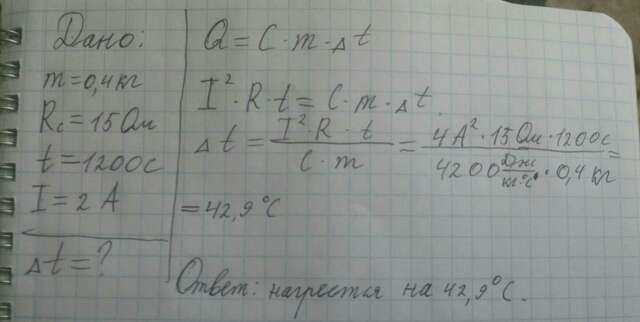 Дано:
m=0,4кг
Rс=15Ом
t=1200с
I=2А
Δt=?
Q=C·m·Δt
I²·R·t=C·m·Δt.
Δt=I²·R·t/C·m=4А²·15Ом·1200с/4200Дж/кг·°С·0,4кг=
=42,9°С
Ответ: нагреется на 42,9°С.